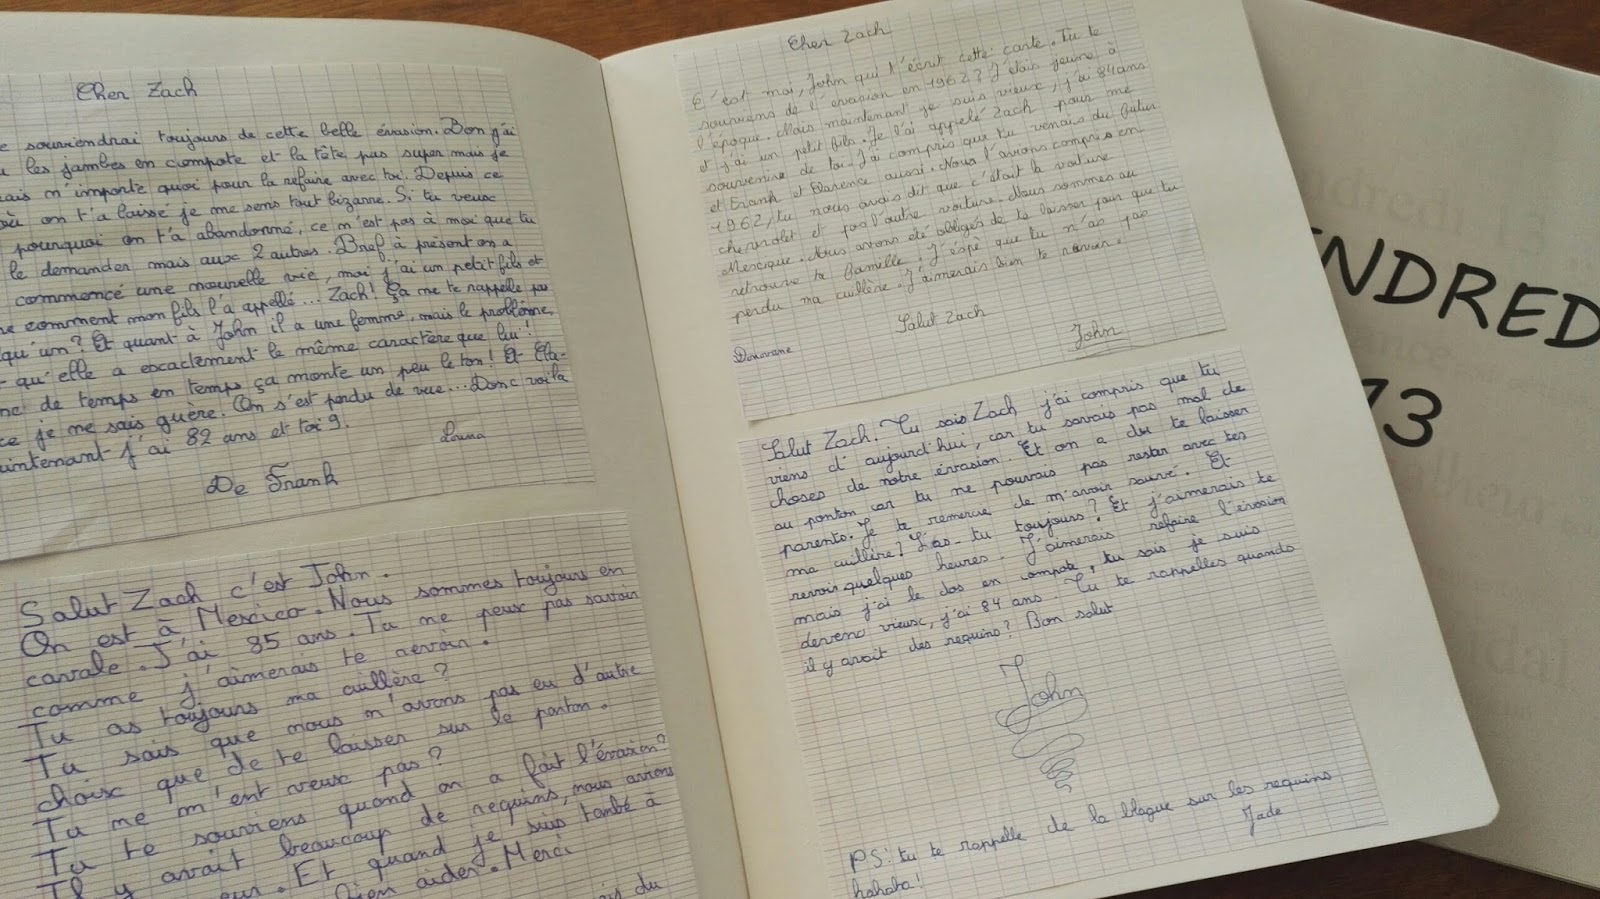 Cher Zach
souviendrai toujours de cette belle évasion. Bon j'ai
les jambes en compote et la tête pas super mais je
ais m'importe quoi pour la refaire avec toi. Depuis ce
où on t'a laissé je me sens tout bizarre. Si tu veux
pourquoi on t'a abandonné, ce m'est pas à moi que tu
le demander mais aux 2 autres. Bref à présent on a
commencé une nouvelle vie, moi j'ai un petit fils et
comment mon fils l'a appellé... Zach! Ça me te rappelle pas
qu'un? Et quant à John il a une femme, mais le problème,
qu'elle a exactement le même caractère que lui!
de temps en temps ça monte un peu le ton! Et Cla-
ce je me sais guère. On s'est perdu de vue... Donc voila
maintenant j'ai 82 ans et toi 9.
Louna
De Frank
Salut Zach c'est John.
On est à Mexico. Nous sommes toujours en
cavale. J'ai 85 ans. Tu me peux pas savoir
comme j'aimerais te revoir.
Tu as toujours ma cuillère?
Tu sais que nous n'avons pas eu d'autre
choix que de te laisser sur le ponton.
Tu me m'ent veux pas?
Tu te souviens quand on a fait l'évasion?
Il y avait beaucoup de requins, nous avions
Et quand je suis tombé à
bien aider. Merci
du
Cher Zach
C'est moi, John qui t'écrit cette carte. Tu te
souviens de l'évasion en 1962? J'étais jeune à
l'époque. Mais maintenant je suis vieux, j'ai 84 ans
et j'ai un petit fils. Je l'ai appelé Zach pour me
souvenire de toi. J'ai compris que tu venais du futur
et Frank et Clarence aussi. Nous l'avons compris en
1962, tu nous avais dit que c'était la voiture
chevrolet et pas l'autre voiture. Nous sommes au
Mexique. Nous avons été obligés de te laisser pour que tu
retrouve ta famille. J'éspè que tu n'as pas
perdu ma cuillère. J'aimerais bien te revoir.
Salut Zach
Donovane
John
Salut Zach. Tu sais Zach j'ai compris que tu
viens d'aujourd'hui, car tu savais pas mal de
choses de notre évasion. Et on a du te laisser
au ponton car tu ne pouvais pas rester avec tes
parents. Je te remercie de m'avoir sauvé. Et
ma cuillère! L'as-tu toujours? Et j'aimerais te
revoir quelques heures. J'aimerais refaire l'évasion
mais j'ai le dos en compote, tu sais je suis
devenu vieux, j'ai 84 ans. Tu te rappelles quands
il y avait des requins? Bon salut
John
PS: tu te rappelle de la blague sur les requins
hahaha!
Jade
NDRED
13